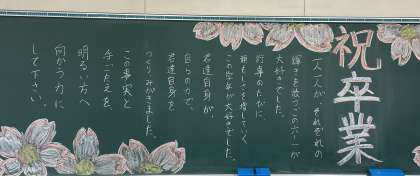 祝卒業
一人一人が、それぞれの
輝きを放つこの六一が
大好きでした。
行事のたびに、
頼もしさを増していく
この学年が大好きでした。
君達自身が、
自らの力で、
君達自身を
つくり、みがきました。
この事実と
手ごたえを、
明るい方へ
向かう力に
して下さい。